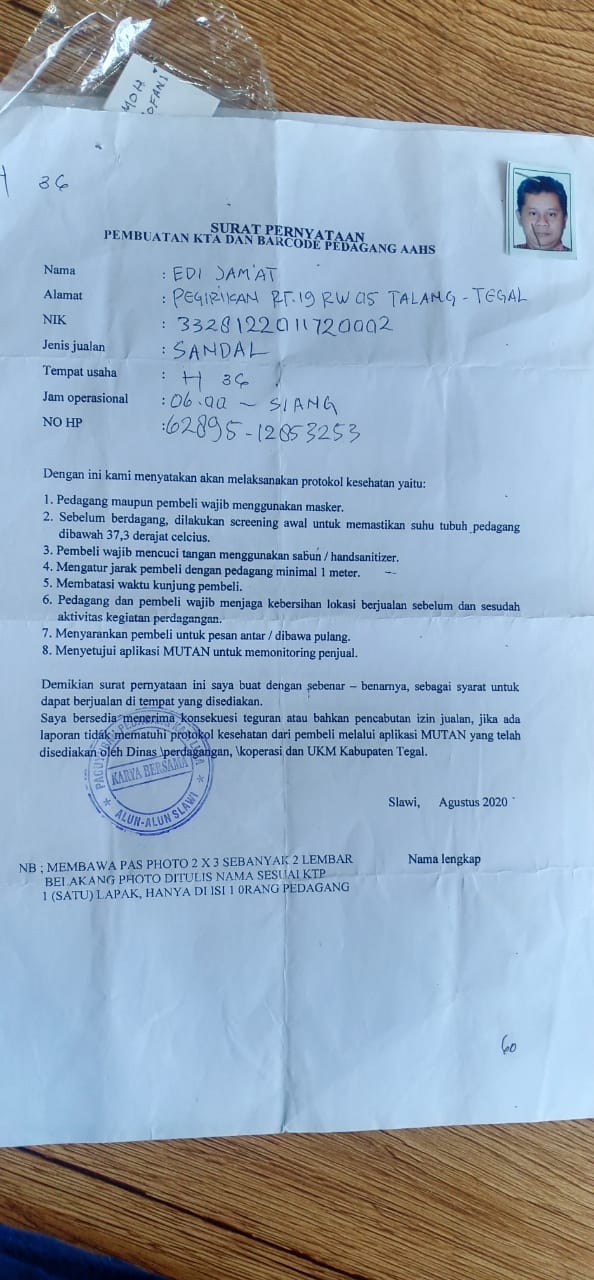 MOH
OFANI
H 36
SURAT PERNYATAAN
PEMBUATAN KTA DAN BARCODE PEDAGANG AAHS
Nama : EDI JAM'AT
Alamat : PEGIRIKAN RT.19 RW 05 TALANG - TEGAL
NIK : 3328122011720002
Jenis jualan : SANDAL
Tempat usaha : H 36
Jam operasional : 06.00 - SIANG
NO HP :62895-12853253
Dengan ini kami menyatakan akan melaksanakan protokol kesehatan yaitu:
1. Pedagang maupun pembeli wajib menggunakan masker.
2. Sebelum berdagang, dilakukan screening awal untuk memastikan suhu tubuh pedagang
dibawah 37,3 derajat celcius.
3. Pembeli wajib mencuci tangan menggunakan sabun / handsanitizer.
4. Mengatur jarak pembeli dengan pedagang minimal 1 meter.
5. Membatasi waktu kunjung pembeli.
6. Pedagang dan pembeli wajib menjaga kebersihan lokasi berjualan sebelum dan sesudah
aktivitas kegiatan perdagangan.
7. Menyarankan pembeli untuk pesan antar / dibawa pulang.
8. Menyetujui aplikasi MUTAN untuk memonitoring penjual.
Demikian surat pernyataan ini saya buat dengan sebenar – benarnya, sebagai syarat untuk
dapat berjualan di tempat yang disediakan.
Saya bersedia menerima konsekuesi teguran atau bahkan pencabutan izin jualan, jika ada
laporan tidak mematuhi protokol kesehatan dari pembeli melalui aplikasi MUTAN yang telah
disediakan oleh Dinas \perdagangan, \koperasi dan UKM Kabupaten Tegal.
KARYA BERSAMA
ALUN-ALUN SLAWI
Slawi, Agustus 2020
Nama lengkap
NB ; MEMBAWA PAS PHOTO 2 X 3 SEBANYAK 2 LEMBAR
BELAKANG PHOTO DITULIS NAMA SESUAI KTP
1 (SATU) LAPAK, HANYA DI ISI 1 0RANG PEDAGANG
60